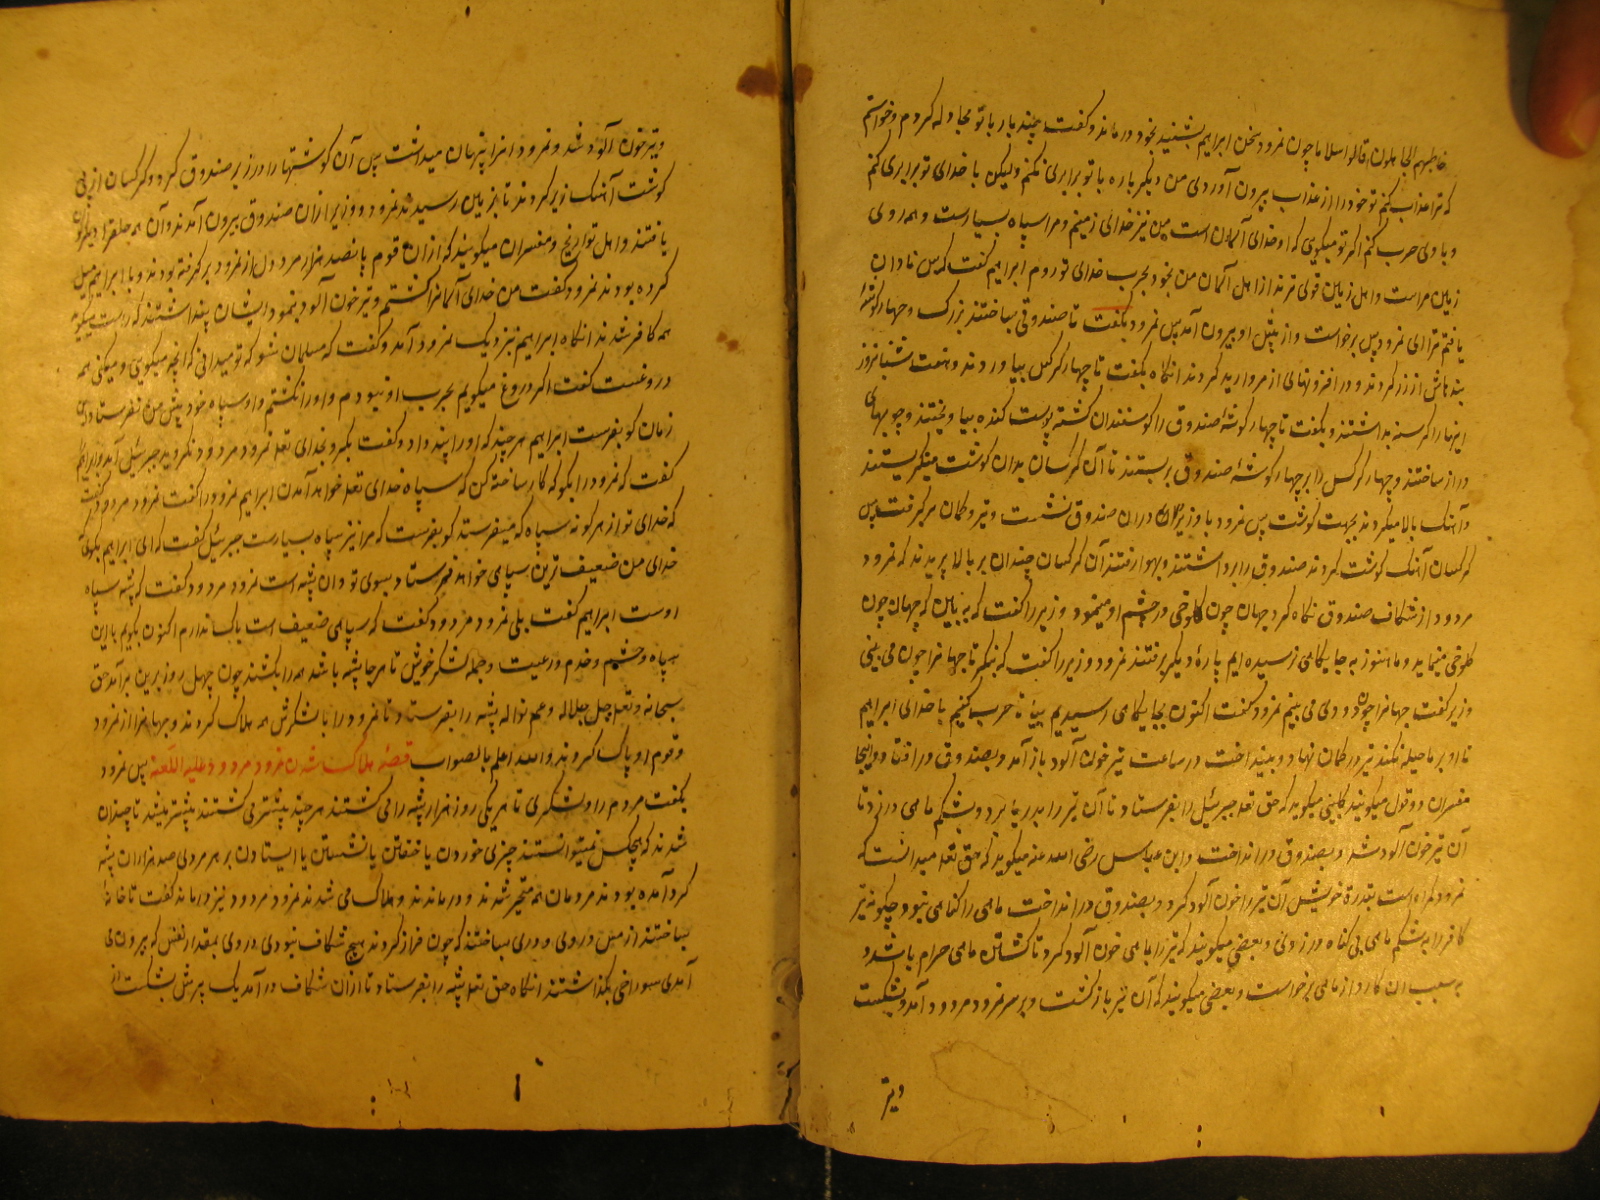 خاطبهم الجاهلون قالوا سلاما چون نمرود سخن ابراهیم بشنید بخود درماند و گفت چند بار با تو مجادله کردم و خواستم
که ترا عذاب کنم تو خود را از عذاب بیرون آوردی من دیگر باره با تو برابری نکنم ولیکن با خدای تو برابری کنم
و با وی حرب کنم اگر تو میکوی که او خدای آسمان است من نیز خدای زمینم و مرا سپاه بسیارست و همه روی
زمین مراست و اهل زمین قوی‌ترند از اهل آسمان من بخود بحرب خدای تو روم ابراهیم گفت که من نادان
یافتم ترا ای نمرود پس برخاست و از پیش او بیرون آمد پس نمرود بگفت تا صندوقی ساختند بزرگ و چهار گوشهٔ
بندهاش از زر کردند و در افزونهای از مروارید کردند آنگاه بگفت تا چهار کرکس بیاوردند و هفت شبانروز
اینها را گرسنه بداشتند و بگفت تا چهار گوشهٔ صندوق را گوسفندان کشته پوست کنده بیاویختند و چوبهای
دراز ساختند و چهار کرکس را بر چهار گوشهٔ صندوق بربستند تا آن کرکسان بدان گوشت مینگریستند
و آهنگ بالا میکردند بجهت گوشت پس نمرود با وزیر دران صندوق نشست و تیر و کمان برگرفت پس
کرکسان آهنگ گوشت کردند صندوق را برداشتند و بهوا رفتند آن کرکسان چندان بر بالا پریدند که نمرود
مردود از شکاف صندوق نگاه کرد جهان چون کلوخی در چشم او مینمود وزیر را گفت که ببین که جهان چون
کلوخی مینماید و ما هنوز به جایگاهی نرسیده ایم پارهٔ دیگر برفتند نمرود وزیر را گفت که بنگر تا جهانرا چون می بینی
وزیر گفت جهانرا چون دودی می بینم نمرود گفت اکنون بجایگاهی رسیدیم بیا تا حرب کنیم با خدای ابراهیم
تا او بر ما حیله نکند تیر در کمان نهاد و بینداخت در ساعت تیر خون آلود باز آمد و بصندوق در افتاد و اینجا
مفسران دو قول میکویند کلبی میکوید که حق تعا جبرئیل را بفرستاد تا آن تیر را بدریا برد و بشکم ماهی در زد تا
آن تیر خون آلود شد و بصندوق در انداخت و ابن عباس رضی الله عنه میکوید که حق تعا میدانست که
نمرود گمراه است بقدرة خویش آن تیر را خون آلود کرد و بصندوق در انداخت ماهی را گناهی نبود چگونه تیر
کافر را بشکم ماهی بی گناه در زدی و بعضی میکویند که تیر را با ماهی خون آلود کرد تا کشتن ماهی حرام باشد و
به سبب آن کارد از ماهی برخاست و بعضی میکویند که آن تیر باز گشت و بر سر نمرود مردود آمد و بشکست
و تیر
و تیر خون آلود شد و نمرود انرا پنهان میداشت پس آن گوشتها را در زیر صندوق کرد و کرکسان از پی
گوشت آهنگ زیر کردند تا بزمین رسیدند نمرود و وزیر ازان صندوق بیرون آمدند و آن همه خلق را
یافتند و اهل تواریخ و مفسران میکویند که ازان قوم پانصد هزار مرد دل از نمرود برگرفته بودند و با ابراهیم میل
کرده بودند نمرود گفت من خدای آسمانرا کشتم و تیر خون آلود بنمود ایشان پنداشتند که راست میگوید
همه کافر شدند آنگاه ابراهیم نزدیک نمرود آمد و گفت که مسلمان شو که تو میدانی که آنچه میکوی و میکنی همه
دروغست گفت اگر دروغ میکویم بحرب او نبودم و او را نکشتم و او سپاه خود پیش من نفرستادی
زمان گو بفرست ابراهیم هر چند که او را پند داد و گفت بگرو بخدای تعا نمرود مردود نگروید جبرئیل آمد و ابراهیم را
گفت که نمرود را بگو که کار ساخته کن که سپاه خدای تعا خواهد آمدن ابراهیم نمرود را گفت نمرود مردود گفت
که خدای تو از هر گونه سپاه که میفرستد گو بفرست که مرا نیز سپاه بسیارست جبرئیل گفت که ای ابراهیم بگوی
خدای من ضعیف ترین سپاهی خواهد فرستاد بسوی تو و آن پشه است نمرود مردود گفت که پشه سپاه
اوست ابراهیم گفت بلی نمرود مردود گفت که سپاهی ضعیف است باک ندارم اکنون بگویم با این
سپاه و حشم و خدم و رعیت و جمله لشکر خویش تا هر جا پشه باشد همه را بکشند چون چهل روز برین برآمد حق
سبحانه و تعا جل جلاله و عم نواله پشه را بفرستاد تا نمرود را با لشکرش همه هلاک کردند و جهانرا از نمرود
و قوم او پاک کردند و الله اعلم بالصواب قصهٔ هلاک شدن نمرود مردود علیه اللعنه پس نمرود
بگفت مردم را و لشکری تا هر یکی روز هزار پشه را می کشتند هر چند بیشتر می کشتند بیشتر میشد تا چندان
شدند که هیچکس نمیتوانستند چیزی خوردن یا خفتن یا نشستن یا ایستادن بر هر مردی صد هزاران پشه
گرد آمده بودند مردمان همه متحیر شدند و درماندند و هلاک می شدند نمرود مردود نیز درماند گفت تا خانهٔ
ساختند از مس در وی و دری ساختند که چون فراز کردند هیچ شکاف نبودی در وی بمقدار نفس که بیرون
آمدی سوراخی بگذاشتند آنگاه حق تعا پشه را بفرستاد تا ازان شکاف در آمد یک پرش بشکست از